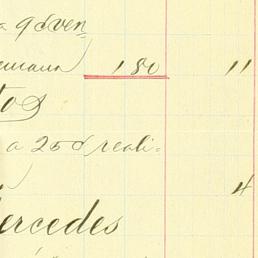 a 9 d ven
180 11
tos
a 25 d reali=
4
ercedes